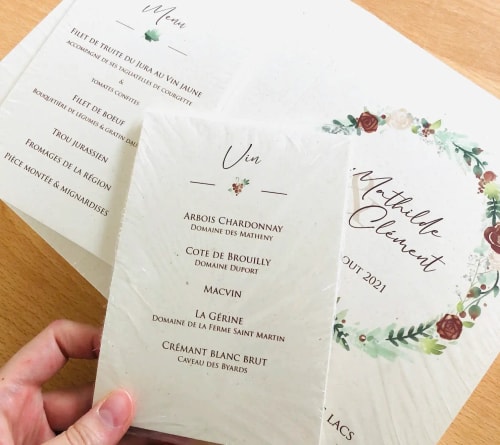 Menu
Filet de truite du Jura au Vin Jaune
accompagné de ses tagliatelles de courgette
&
tomates confites
Filet de boeuf
Bouquetière de légumes & gratin dau
Trou jurassien
Fromages de la région
Pièce montée & mignardises
Vin
Arbois Chardonnay
Domaine des Matheny
Cote de Brouilly
Domaine Duport
Macvin
La Gérine
Domaine de la Ferme Saint Martin
Crémant blanc brut
Caveau des Byards
Mathilde
Clément
out 2021
Lacs